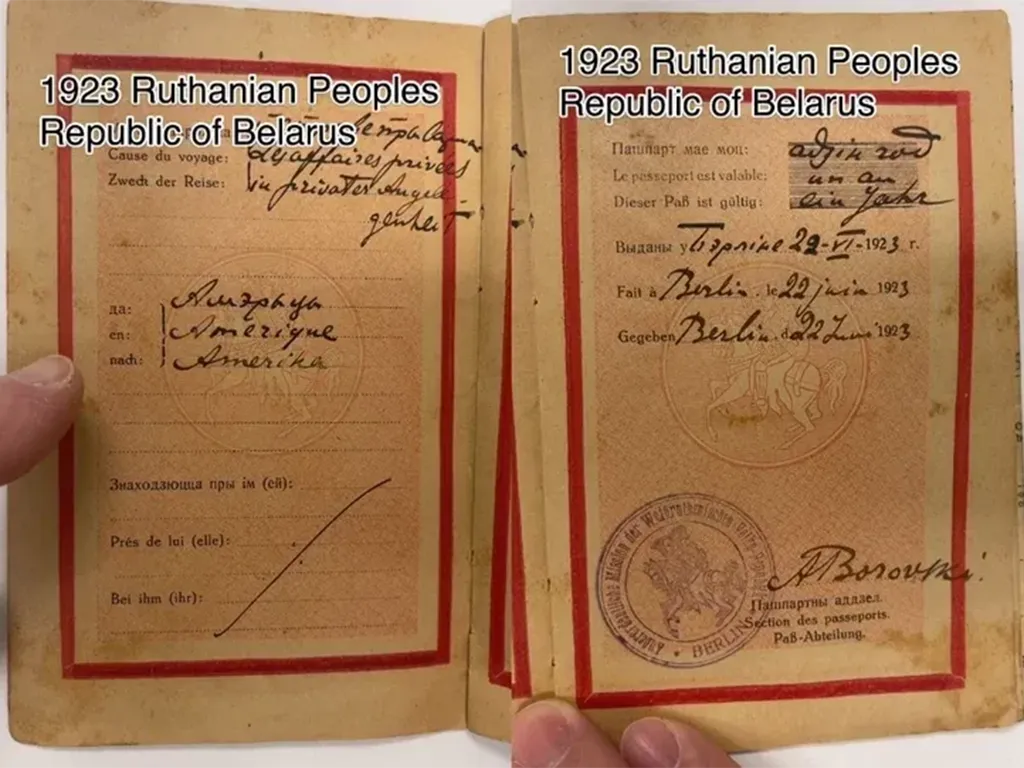 1923 Ruthanian Peoples
Republic of Belarus
Cause du voyage: Des affaires privées
Zweck der Reise: in privater Angele-
genheit
да: Амэрыцы
en: Amerique
nach: Amerika
Знаходзюцца пры ім (ей):
Près de lui (elle):
Bei ihm (ihr):
1923 Ruthanian Peoples
Republic of Belarus
Пашпарт мае моц: adzin rod
Le passeport est valable: un an
Dieser Paß ist gültig: ein Jahr
Выданы у Бэрліне 22-VI-1923 г.
Fait à Berlin. le 22 juin 1923
Gegeben Berlin. d. 22 Juni 1923
Außerordentliche Mission der Weißruthenischen
BERLIN
A Borovski.
Пашпартны аддзел.
Section des passeports.
Paß-Abteilung.